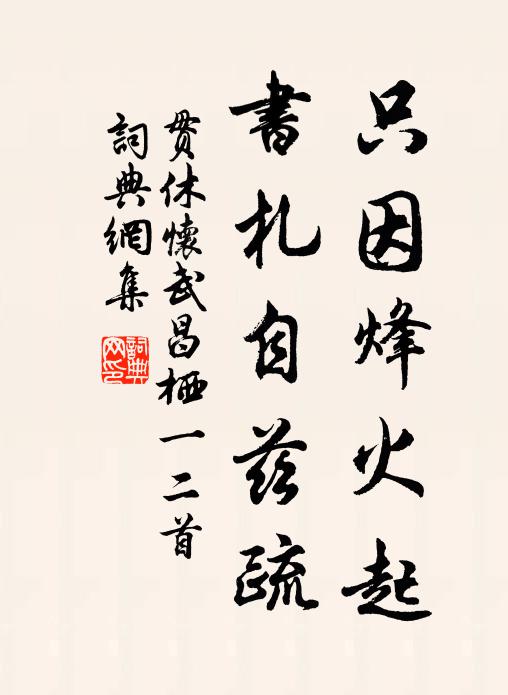 只因烽火起
書札自茲疏
貫休懷武昌栖一二首
詞典網集
詞典網印